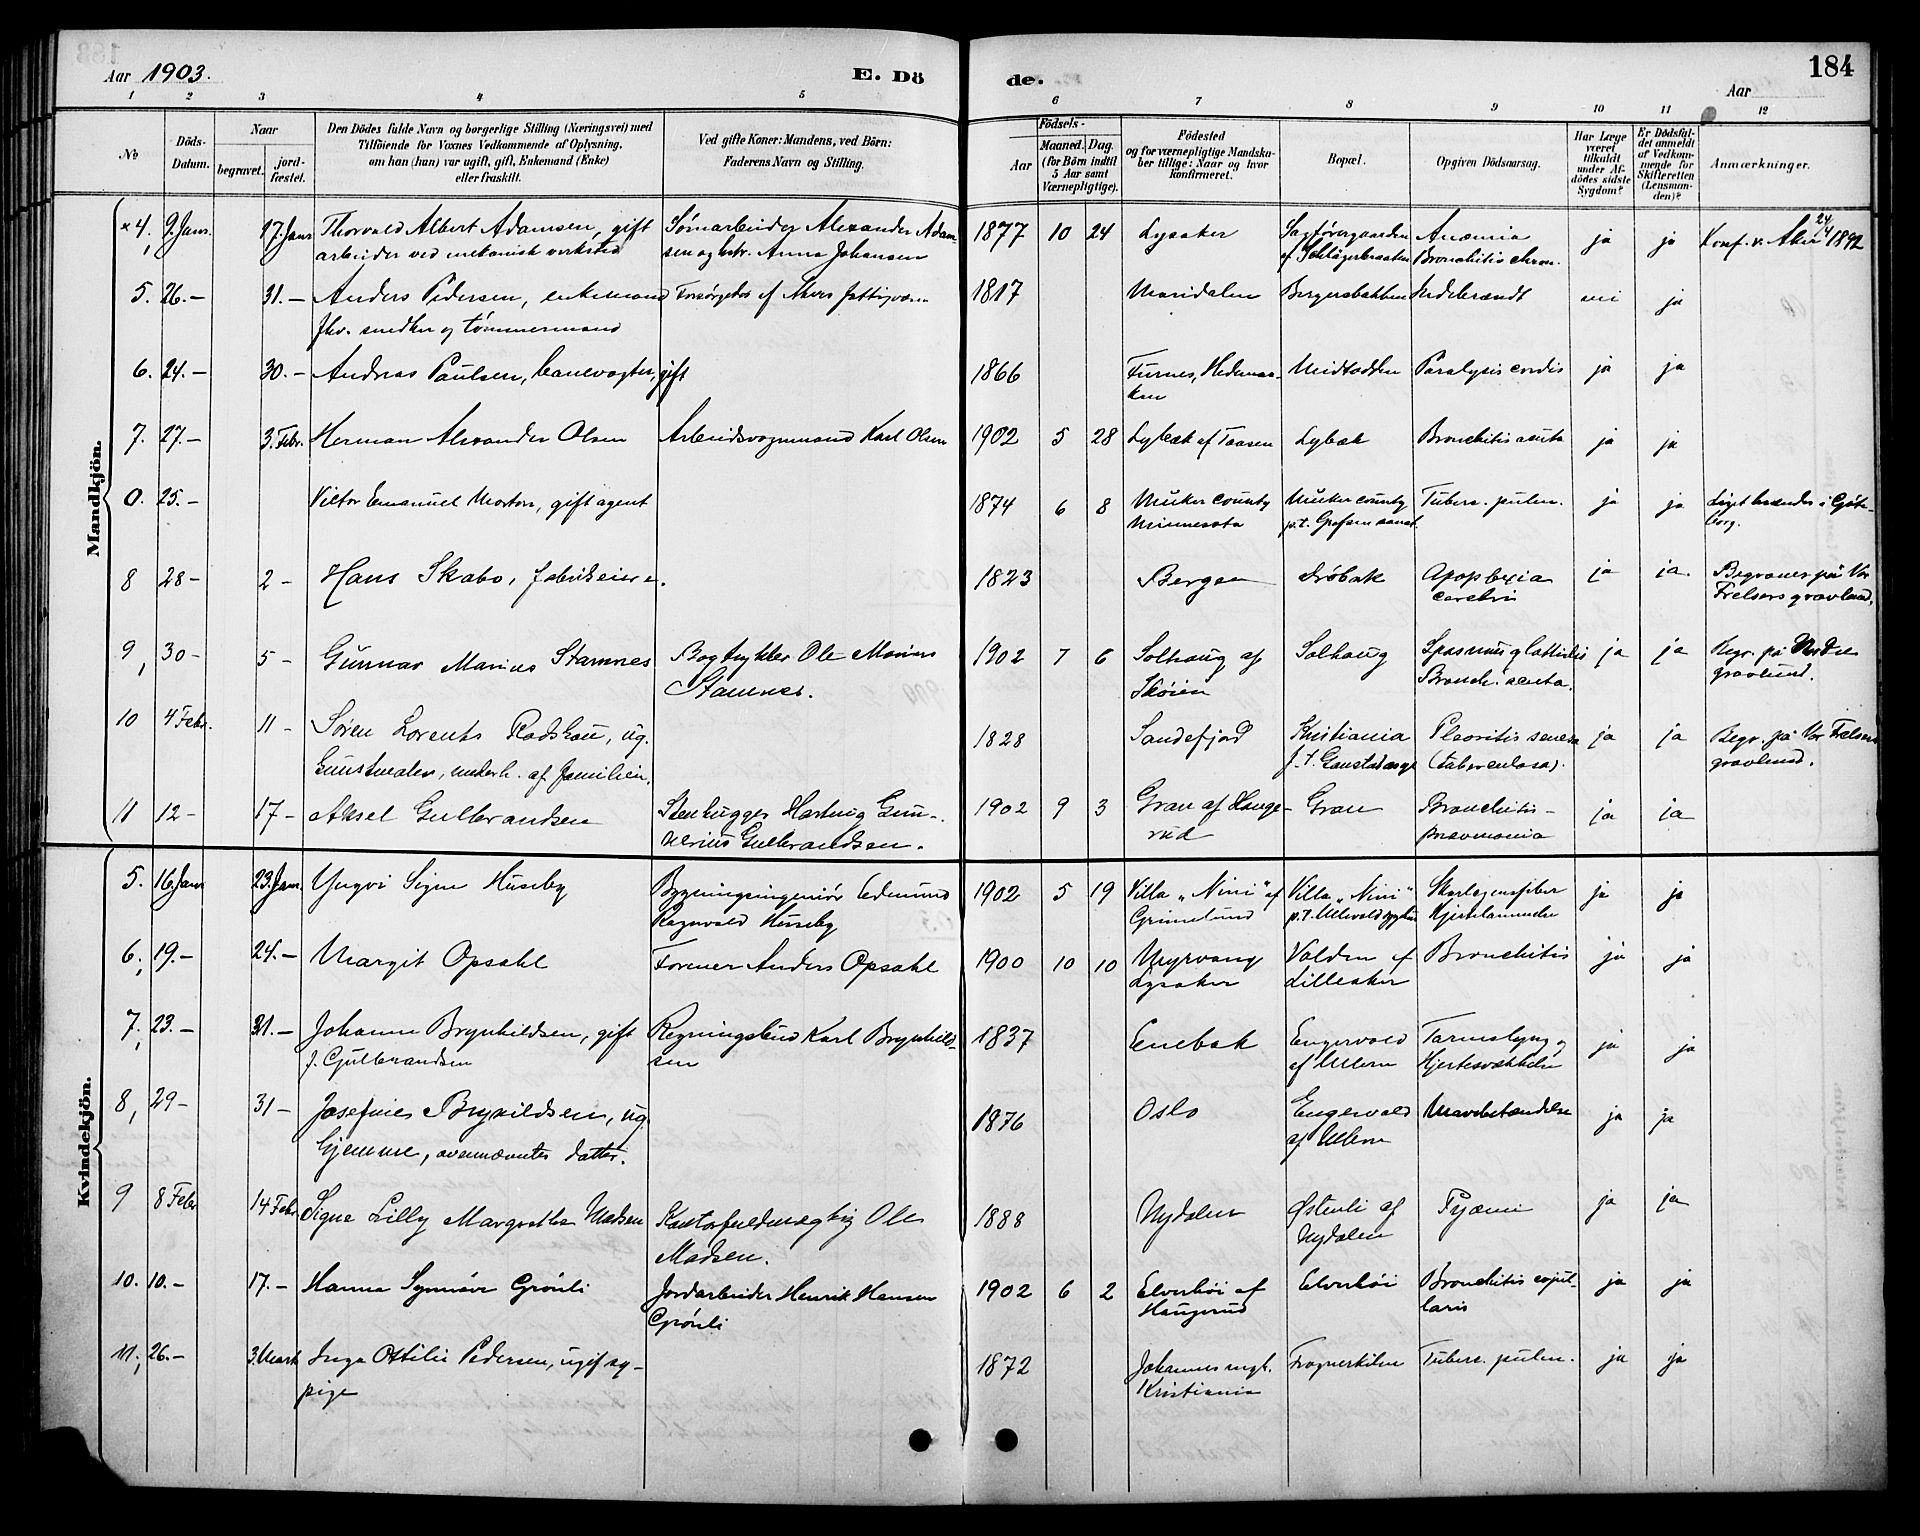 Aar 1903.
E. Dö
de.
184
Aar
1 2 3 4 5 6 7 8 9 10 11 12
No
Döds-
Datum.
Naar
begravet.
jord-
fæstet.
Den Dödes fulde Navn og borgerlige Stilling (Næringsvei) med
Tilföiende for Voxnes Vedkommende af Oplysning.
om han (hun) var ugift, gift, Enkemand (Enke)
eller fraskilt.
Ved gifte Koner: Mandens, ved Börn:
Faderens Navn og Stilling.
Födsels-
Aar
Maaned. Dag.
(for Börn indtil
5 Aar samt
Værnepligtige).
Födested
og for værnepligtige Mandska-
ber tillige: Naar og hvor
konfirmeret.
Bopæl.
Opgiven Dödsaarsag.
Har Læge
været
tilkaldt
under Af-
dödes sidste
Sygdom?
Er Dödsfal-
det anmeldt
af Vedkom-
mende for
Skifteretten
(Lensman-
den)?
Anmærkninger.
Mandkjön.
4. 9. Janr. 17. Janr Thorvald Albert Adamsen, gift Sømarbeider Alexander Adam- 1877 10 24 Lysaker Anæmia ja ja Konf. v. Aker 24/4 1892
arbeider ved mekanisk verksted sen og hstr. Anna Johansen Bronchitis chron.
5. 26.- 31.- Anders Pedersen, enkemand 1817 Maridalen Bergersbakken ja
fhv. snedker og tømmermand
6. 24.- 30.- Andreas Paulsen, banevogter, gift 1866 Furnes, Hedemar- Midtodden Paralysis cordis ja ja
ken
7. 27.- 3. Febr. Herman Alexander Olsen Arbeidsvognmand Karl Olsen 1902 5 28 Lybæk af Taasen Lybæk Bronchitis acuta ja ja
0. 25.- Victor Emanuel Morton, gift agent 1874 6 8 Muker County Muker county Tuberc. pulm. ja ja Liget brændes i Gøte-
Minnesota p.t. Grefsen sanat. borg.
8 28- 2- Hans Skabo, fabrikeier. 1823 Bergen Drøbak Apoplexia ja ja. Begraves på Vor
cerebri Frelsers gravlund.
9, 30- 5- Gunnar Marius Stamnes Bogtrykker Ole Marius 1902 7 6 Solhaug af Solhaug Spasmus glottidis ja ja Begr. på Nordre
Stamnes. Skøien Bronch. acuta. gravlund.
10 4 Febr. 11- Søren Lorents Rodskou, ug. 1828 Sandefjord Kristiania ja ja Begr. på Vor Frelsers
Kunstmaler, underh. af familien. p.t. Gaustad asyl (tuberculosa). gravlund.
11 12- 17- Aksel Gulbrandsen Stenhugger Hartvig Gun- 1902 9 3 Gran af Hauge- Gran Bronchitis- ja ja
nerius Gulbrandsen. rud pneumonia
Kvindekjön.
5. 16. Janr 23. Janr. Yngvi Signe Huseby Bygningsingeniør Edmund 1902 5 19 Villa "Nini" af Villa "Nini" Skarlagensfeber ja ja
Ragnvald Huseby Grimelund p.t. Ullevold sygehus Hjertelammelse
6, 19.- 24.- Margit Opsahl Former Anders Opsahl 1900 10 10 Myrvang Volden af Bronchitis ja ja
Lysaker Lilleaker
7, 23.- 31.- Johanne Brynhildsen, gift Regningsbud Karl Brynhild- 1837 Enebak Engervold Tarmslyng og ja ja
f. Gulbrandsen sen af Ullern Hjertesvækkelse
8, 29- 31- Josefine Brynildsen, ug. 1876 Oslo Engervold Mavebetændelse ja ja
hjemme, ovennævntes datter. af Ullern
9 8 Febr 14 Febr. Signe Lilly Margrethe Madsen Kontorfuldmægtig Ole 1888 Nydalen Østenli af Pyæmi ja ja
Madsen. Nydalen
10. 10.- 17.- Hanna Synnøve Grønli Jordarbeider Henrik Hansen 1902 6 2 Elverhøi af Elverhøi Bronchitis capil- ja ja
Grønli Haugerud laris
11, 26.- 3. Marts Inga Ottilie Pedersen, ugift sy- 1872 Johannes mgt. Frognerkilen Tuberc. pulm. ja ja
pige Kristiania